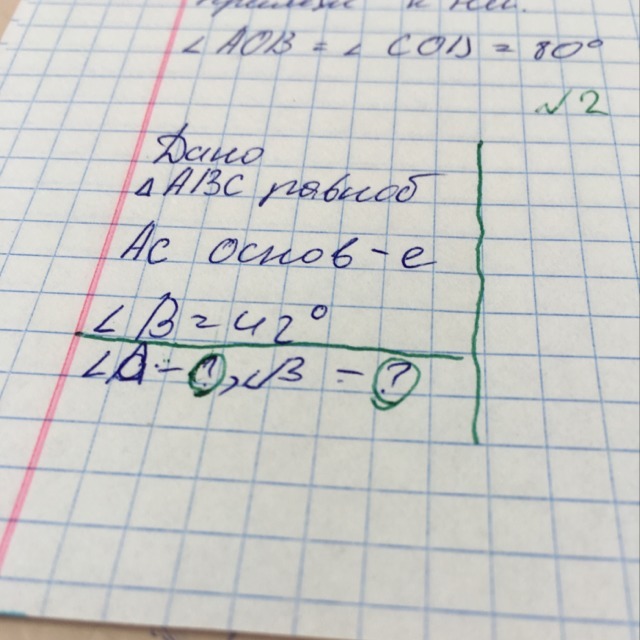 ∠AOB = ∠COD = 80°
√2
Дано
△ABC равноб
Ac основ-е
∠B = 42°
∠A - ?, ∠B - ?